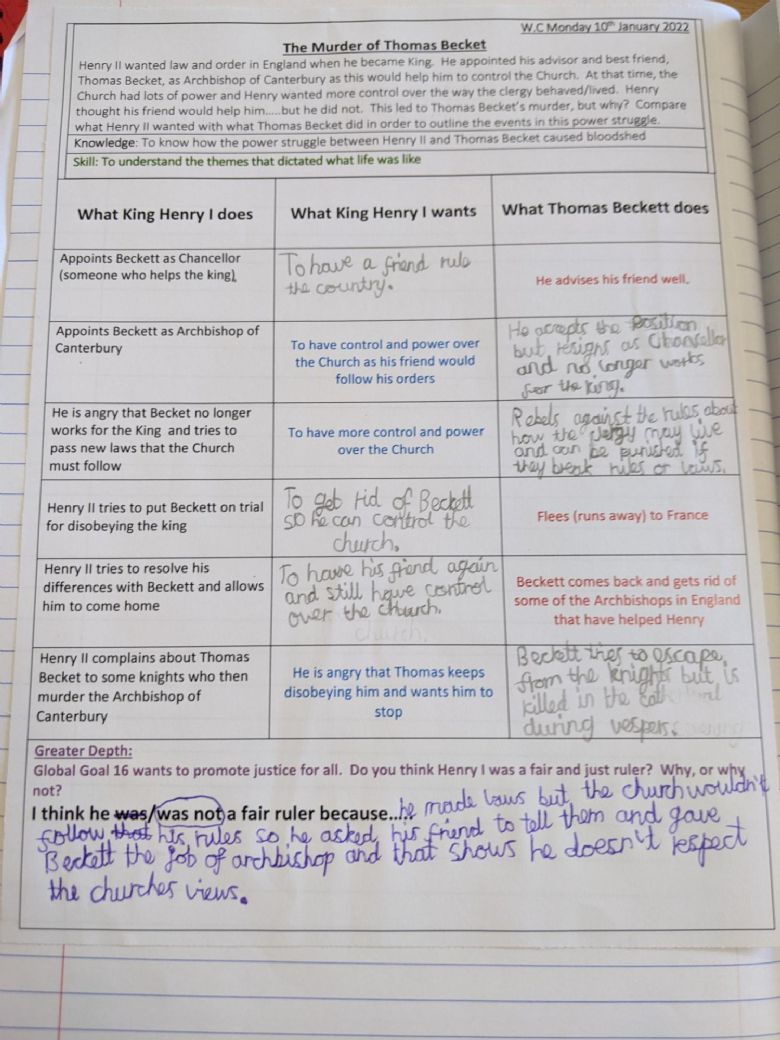 W.C Monday 10th January 2022
The Murder of Thomas Becket
Henry II wanted law and order in England when he became King. He appointed his advisor and best friend,
Thomas Becket, as Archbishop of Canterbury as this would help him to control the Church. At that time, the
Church had lots of power and Henry wanted more control over the way the clergy behaved/lived. Henry
thought his friend would help him.....but he did not. This led to Thomas Becket's murder, but why? Compare
what Henry II wanted with what Thomas Becket did in order to outline the events in this power struggle.
Knowledge: To know how the power struggle between Henry II and Thomas Becket caused bloodshed
Skill: To understand the themes that dictated what life was like
What King Henry I does
What King Henry I wants
What Thomas Beckett does
Appoints Beckett as Chancellor
(someone who helps the king).
To have a friend rule
the country.
He advises his friend well.
Appoints Beckett as Archbishop of
Canterbury
To have control and power over
the Church as his friend would
follow his orders
He accepts the position
but resigns as Chancellor
and no longer works
for the king.
He is angry that Becket no longer
works for the King and tries to
pass new laws that the Church
must follow
To have more control and power
over the Church
Rebels against the rules about
how the clergy may live
and can be punished if
they break rules or laws.
Henry II tries to put Beckett on trial
for disobeying the king
To get rid of Beckett
so he can control the
church.
Flees (runs away) to France
Henry II tries to resolve his
differences with Beckett and allows
him to come home
To have his friend again
and still have control
over the church.
church.
Beckett comes back and gets rid of
some of the Archbishops in England
that have helped Henry
Henry II complains about Thomas
Becket to some knights who then
murder the Archbishop of
Canterbury
He is angry that Thomas keeps
disobeying him and wants him to
stop
Beckett tries to escape
from the knights but is
killed in the cathedral
during vespers.
Greater Depth:
Global Goal 16 wants to promote justice for all. Do you think Henry I was a fair and just ruler? Why, or why
not?
I think he was/was not a fair ruler because..... he made laws but the church wouldn't
follow that his rules so he asked his friend to tell them and gave
Beckett the job of archbishop and that shows he doesn't respect
the churches views.